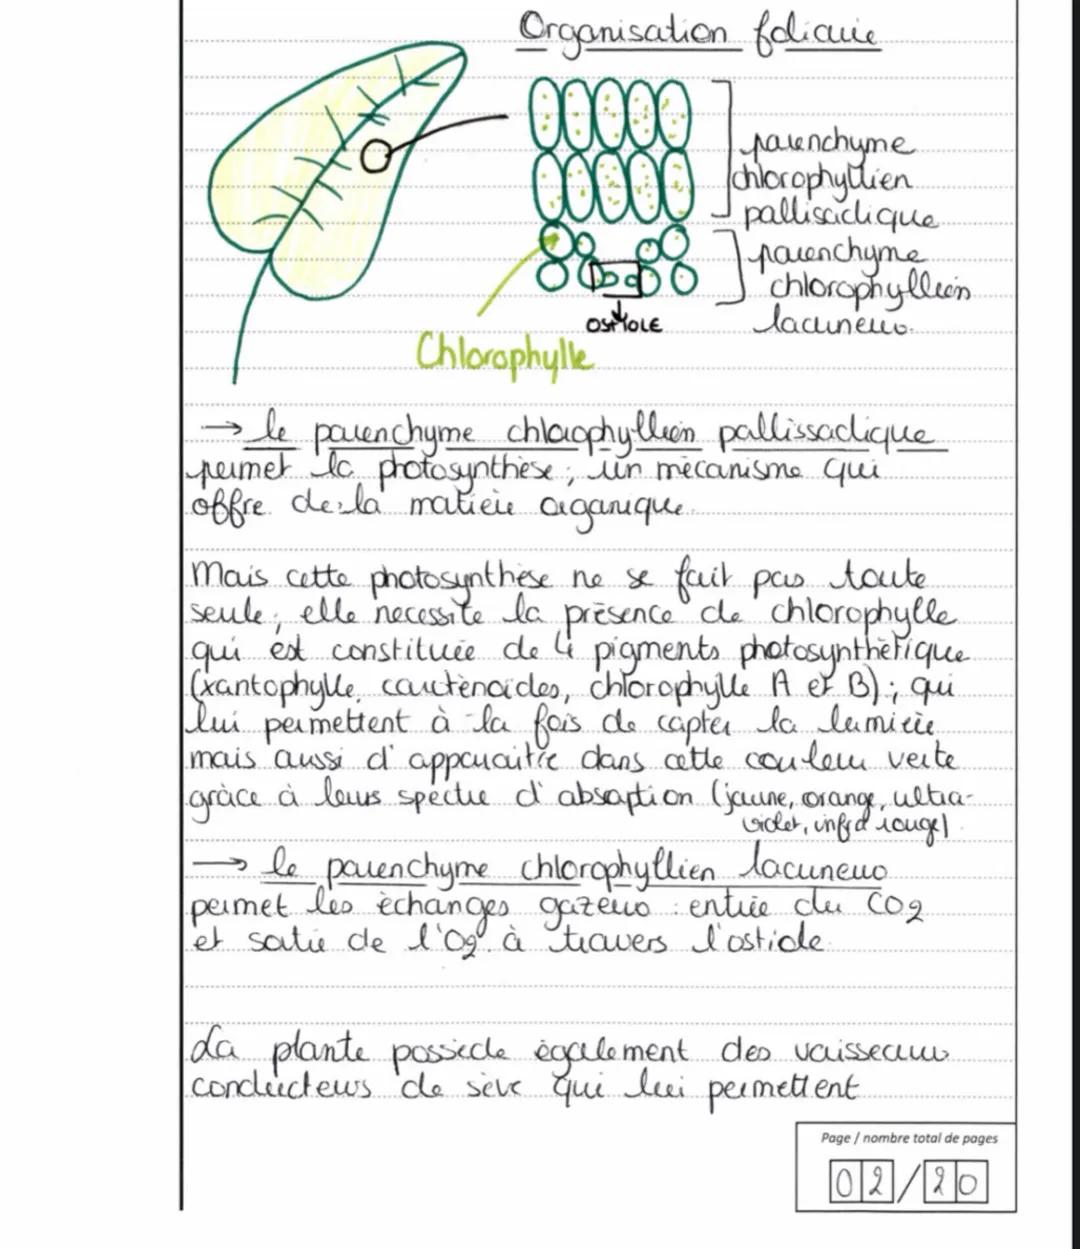 Organisation foliaire
parenchyme
chlorophyllien
pallisadique
parenchyme
chlorophyllien
lacuneux.
OSTIOLE
Chlorophylle
→ le parenchyme chlorophyllien pallissadique
permet la photosynthèse ; un mécanisme qui
offre de la matière organique.
Mais cette photosynthèse ne se fait pas toute
seule ; elle necessite la présence de chlorophylle
qui est constituée de 4 pigments photosynthétique
(xantophylle, carténoïdes, chlorophylle A et B) ; qui
lui permettent à la fois de capter la lumière
mais aussi d'apparaitre dans cette couleur verte
grâce à leurs spectre d'absorption (jaune, orange, ultra-
violet, infra rouge)
→ le parenchyme chlorophyllien lacuneux
permet les échanges gazeux : entrée du CO2
et sortie de l'O2 à travers l'ostiole.
La plante possède également des vaisseaux
conducteurs de sève qui lui permettent
Page / nombre total de pages
02/20